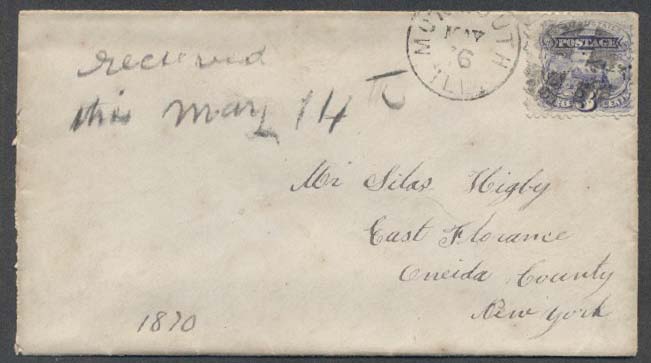 MONMOUTH
MAY
6
ILL.
POSTAGE
3
recieved
this May 14th
Mr Silas Higby
East Florance
Oneida County
New York
1870